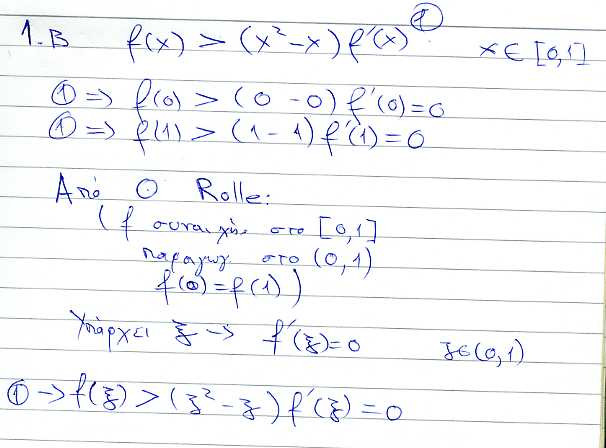 1.B f(x) > (x²-x) f'(x) ① x ∈ [0,1]
① => f(0) > (0-0) f'(0)=0
① => f(1) > (1-1) f'(1)=0
Από Θ Rolle:
(f συνεχής στο [0,1]
παραγωγ στο (0,1)
f(0)=f(1))
Υπάρχει ξ → f'(ξ)=0 ξ∈(0,1)
① → f(ξ) > (ξ²-ξ) f'(ξ) = 0